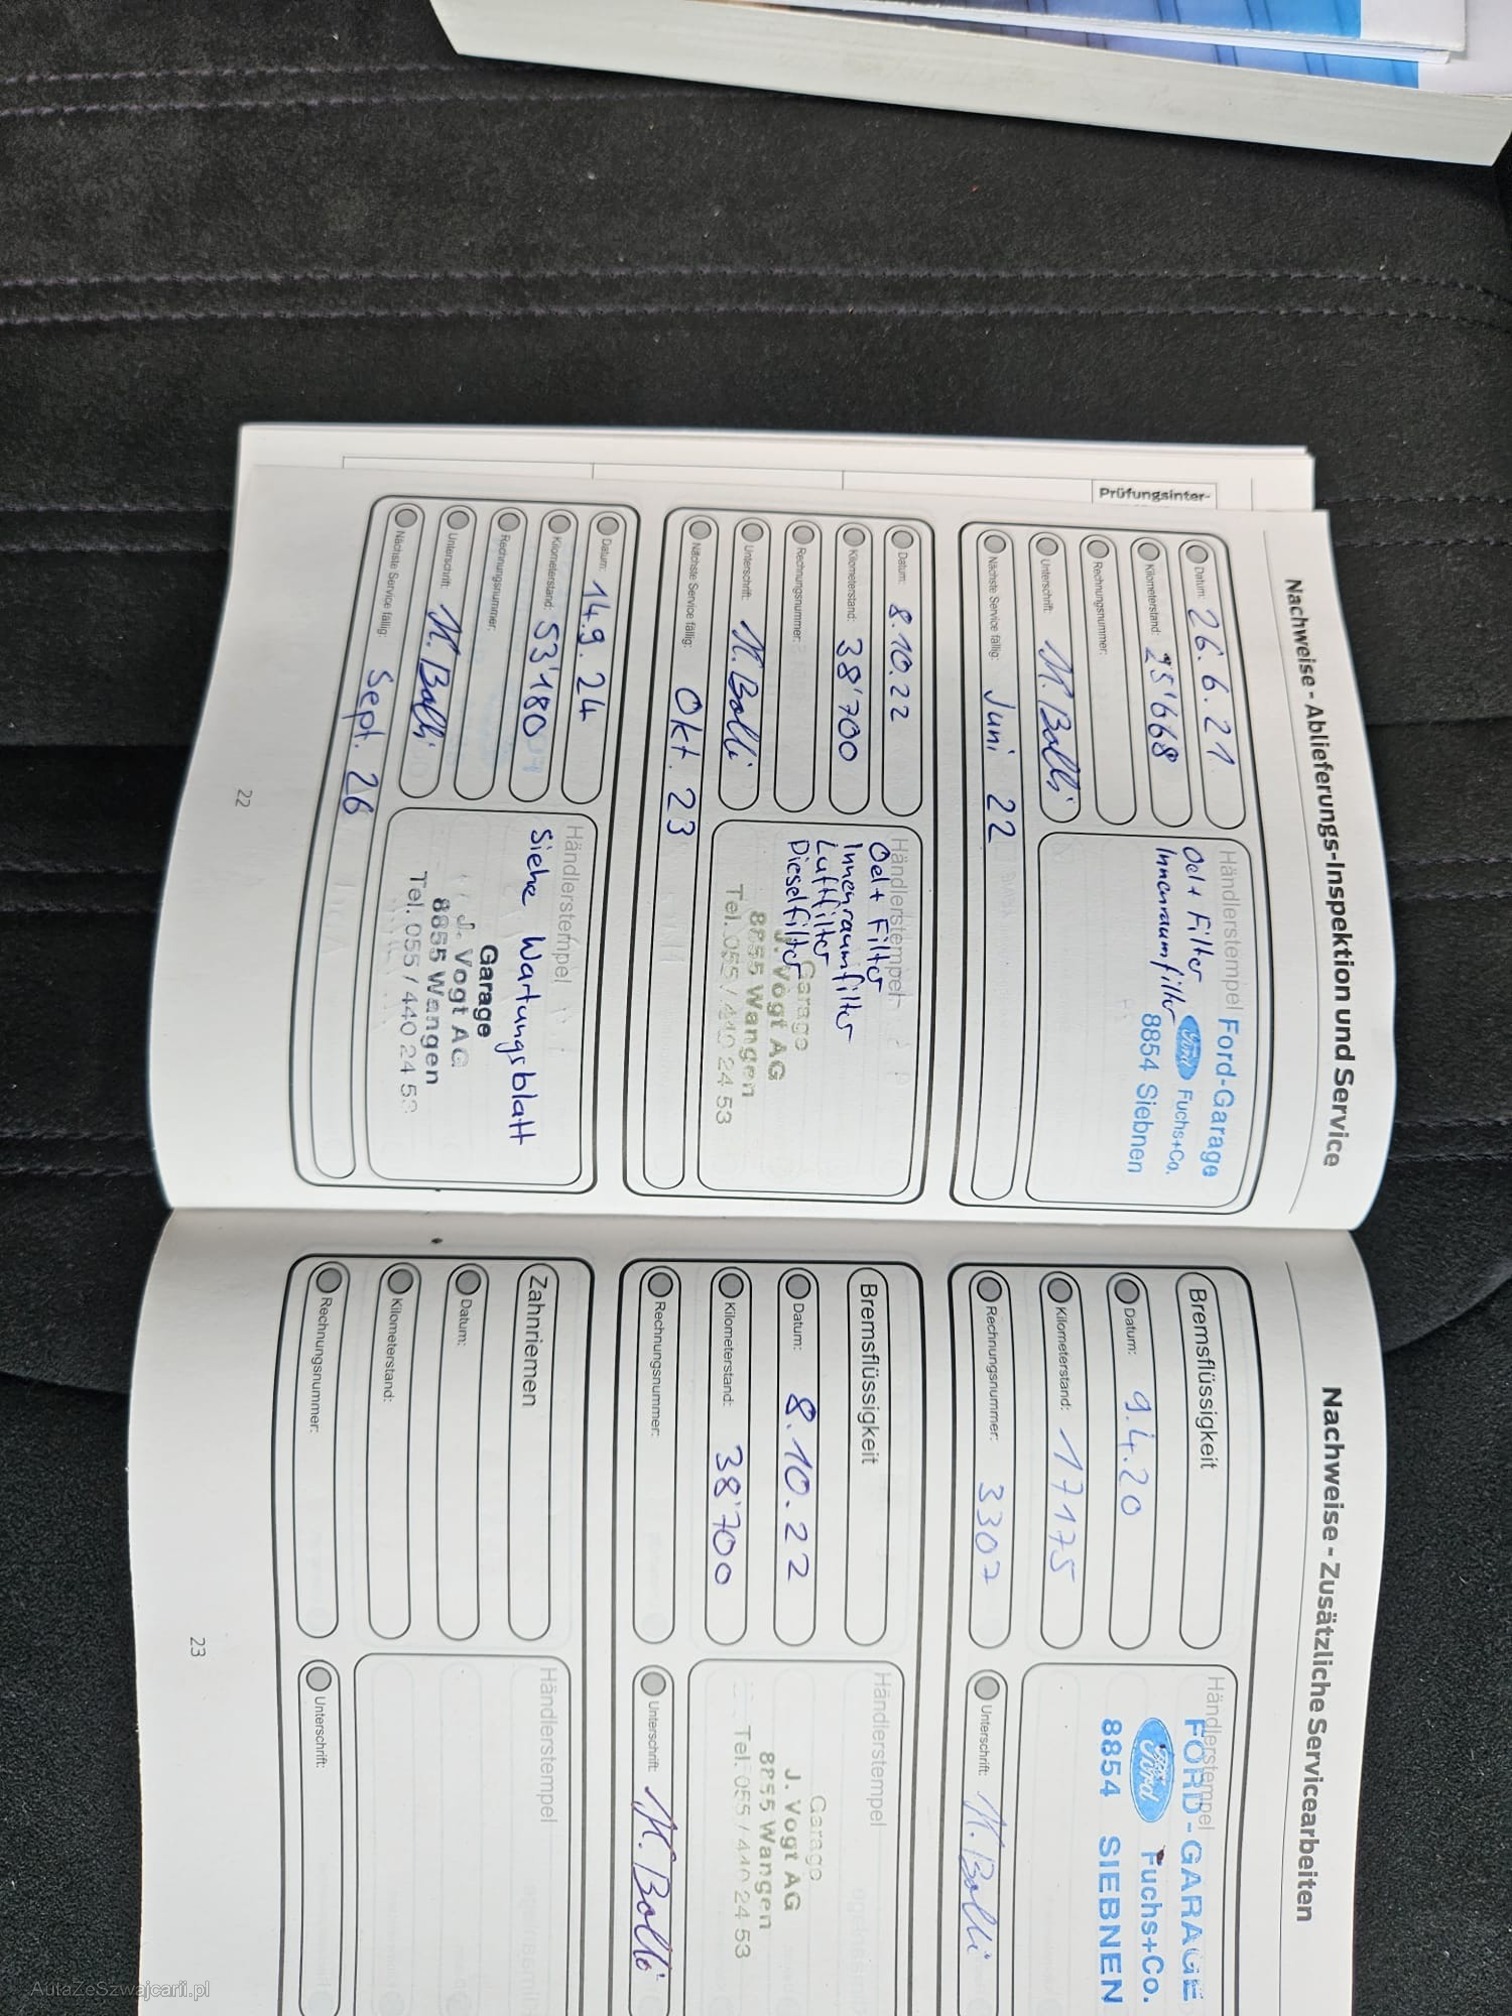 Prüfungsinter-
Nachweise - Ablieferungs-Inspektion und Service
Datum: 26.6.21
Kilometerstand: 25'668
Rechnungsnummer:
Unterschrift: M. Bolli
Nächste Service fällig: Juni 22
Händlerstempel Ford-Garage
Oel + Filter Ford Fuchs+Co.
Innenraumfilter 8854 Siebnen
Datum: 8.10.22
Kilometerstand: 38'700
Rechnungsnummer:
Unterschrift: M. Bolli
Nächste Service fällig: Okt. 23
Händlerstempel
Oel + Filter
Innenraumfilter
Luftfilter Garage
Dieselfilter J. Vogt AG
8855 Wangen
Tel. 055 / 440 24 53
Datum: 14.9.24
Kilometerstand: 53'180
Rechnungsnummer:
Unterschrift: M. Bolli
Nächste Service fällig: Sept. 26
Händlerstempel
Siehe Wartungsblatt
Garage
J. Vogt AG
8855 Wangen
Tel. 055 / 440 24 53
22
Nachweise - Zusätzliche Servicearbeiten
Bremsflüssigkeit
Datum: 9.4.20
Kilometerstand: 17175
Rechnungsnummer: 3307
Händlerstempel
FORD-GARAGE
Ford Fuchs+Co.
8854 SIEBNEN
Unterschrift: M. Bolli
Bremsflüssigkeit
Datum: 8.10.22
Kilometerstand: 38'700
Rechnungsnummer:
Händlerstempel
Garage
J. Vogt AG
8855 Wangen
Tel. 055 / 440 24 53
Unterschrift: M. Bolli
Zahnriemen
Datum:
Kilometerstand:
Rechnungsnummer:
Händlerstempel
Unterschrift:
23
AutaZeSzwajcarii.pl